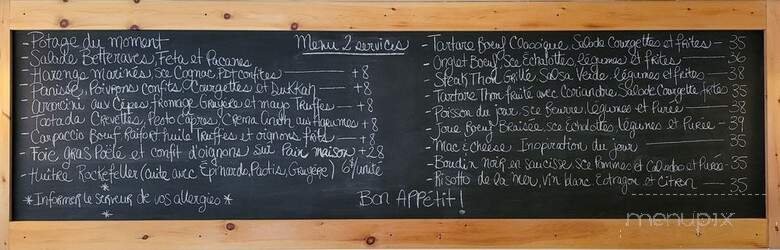 Menu 2 services
- Potage du moment
- Salade Betteraves, Feta et Pacanes
- Harengs marinés, sce Cognac, PDT confites +8
- Panisse, Poivrons confits, Courgettes et Dukkah +8
- Arancini aux Cèpes, fromage Gruyère et mayo Truffes +8
- Tostada Crevettes, Pesto Capres, Crema aux Agrumes +8
- Carpaccio Bœuf Raifort huile Truffes et oignons frits +8
- Foie gras Poêlé et confit d'oignons sur Pain maison +28
- Huître Rockefeller (cuite avec Épinards, Pastis, Gruyère) 6$/unité
*
* Informer le serveur de vos allergies *
*
- Tartare Bœuf Classique, Salade Courgettes et frites - 35
- Onglet Bœuf, Sce Échalottes, légumes et frites - 36
- Steak Thon Grillé Salsa Verde, légumes et frites - 38
- Tartare Thon fruité avec Coriandre Salade Courgette frites 35
- Poisson du jour sce Beurre, légumes et Purée - 38
- Joue Bœuf Braisée, sce Échalottes, légumes et Purée - 39
- Mac & Cheese Inspiration du jour 35
- Boudin noir en saucisse sce Pommes et Calvados et Purée - 35
- Risotto de la mer, vin blanc Estragon et Citron 35
Bon Appétit!
menupix